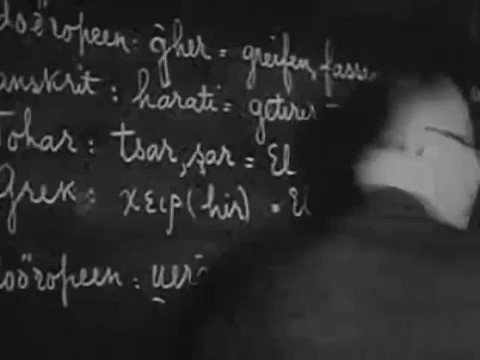 doöropeen: g̑her = greifen, fasse
anskrit : harati = getirer
Tohar : tsar, şar = El
Grek : χειρ (hir) = El
doöropeen : uer